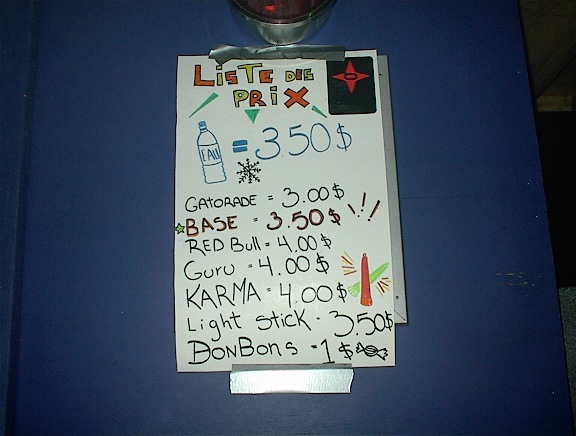 LiSTE DES
PRiX
EAU = 3.50$
GATORADE = 3.00$
BASE = 3.50$ !!
RED Bull = 4.00$
Guru = 4.00$
KARMA = 4.00$
Light Stick - 3.50$
BonBons - 1$